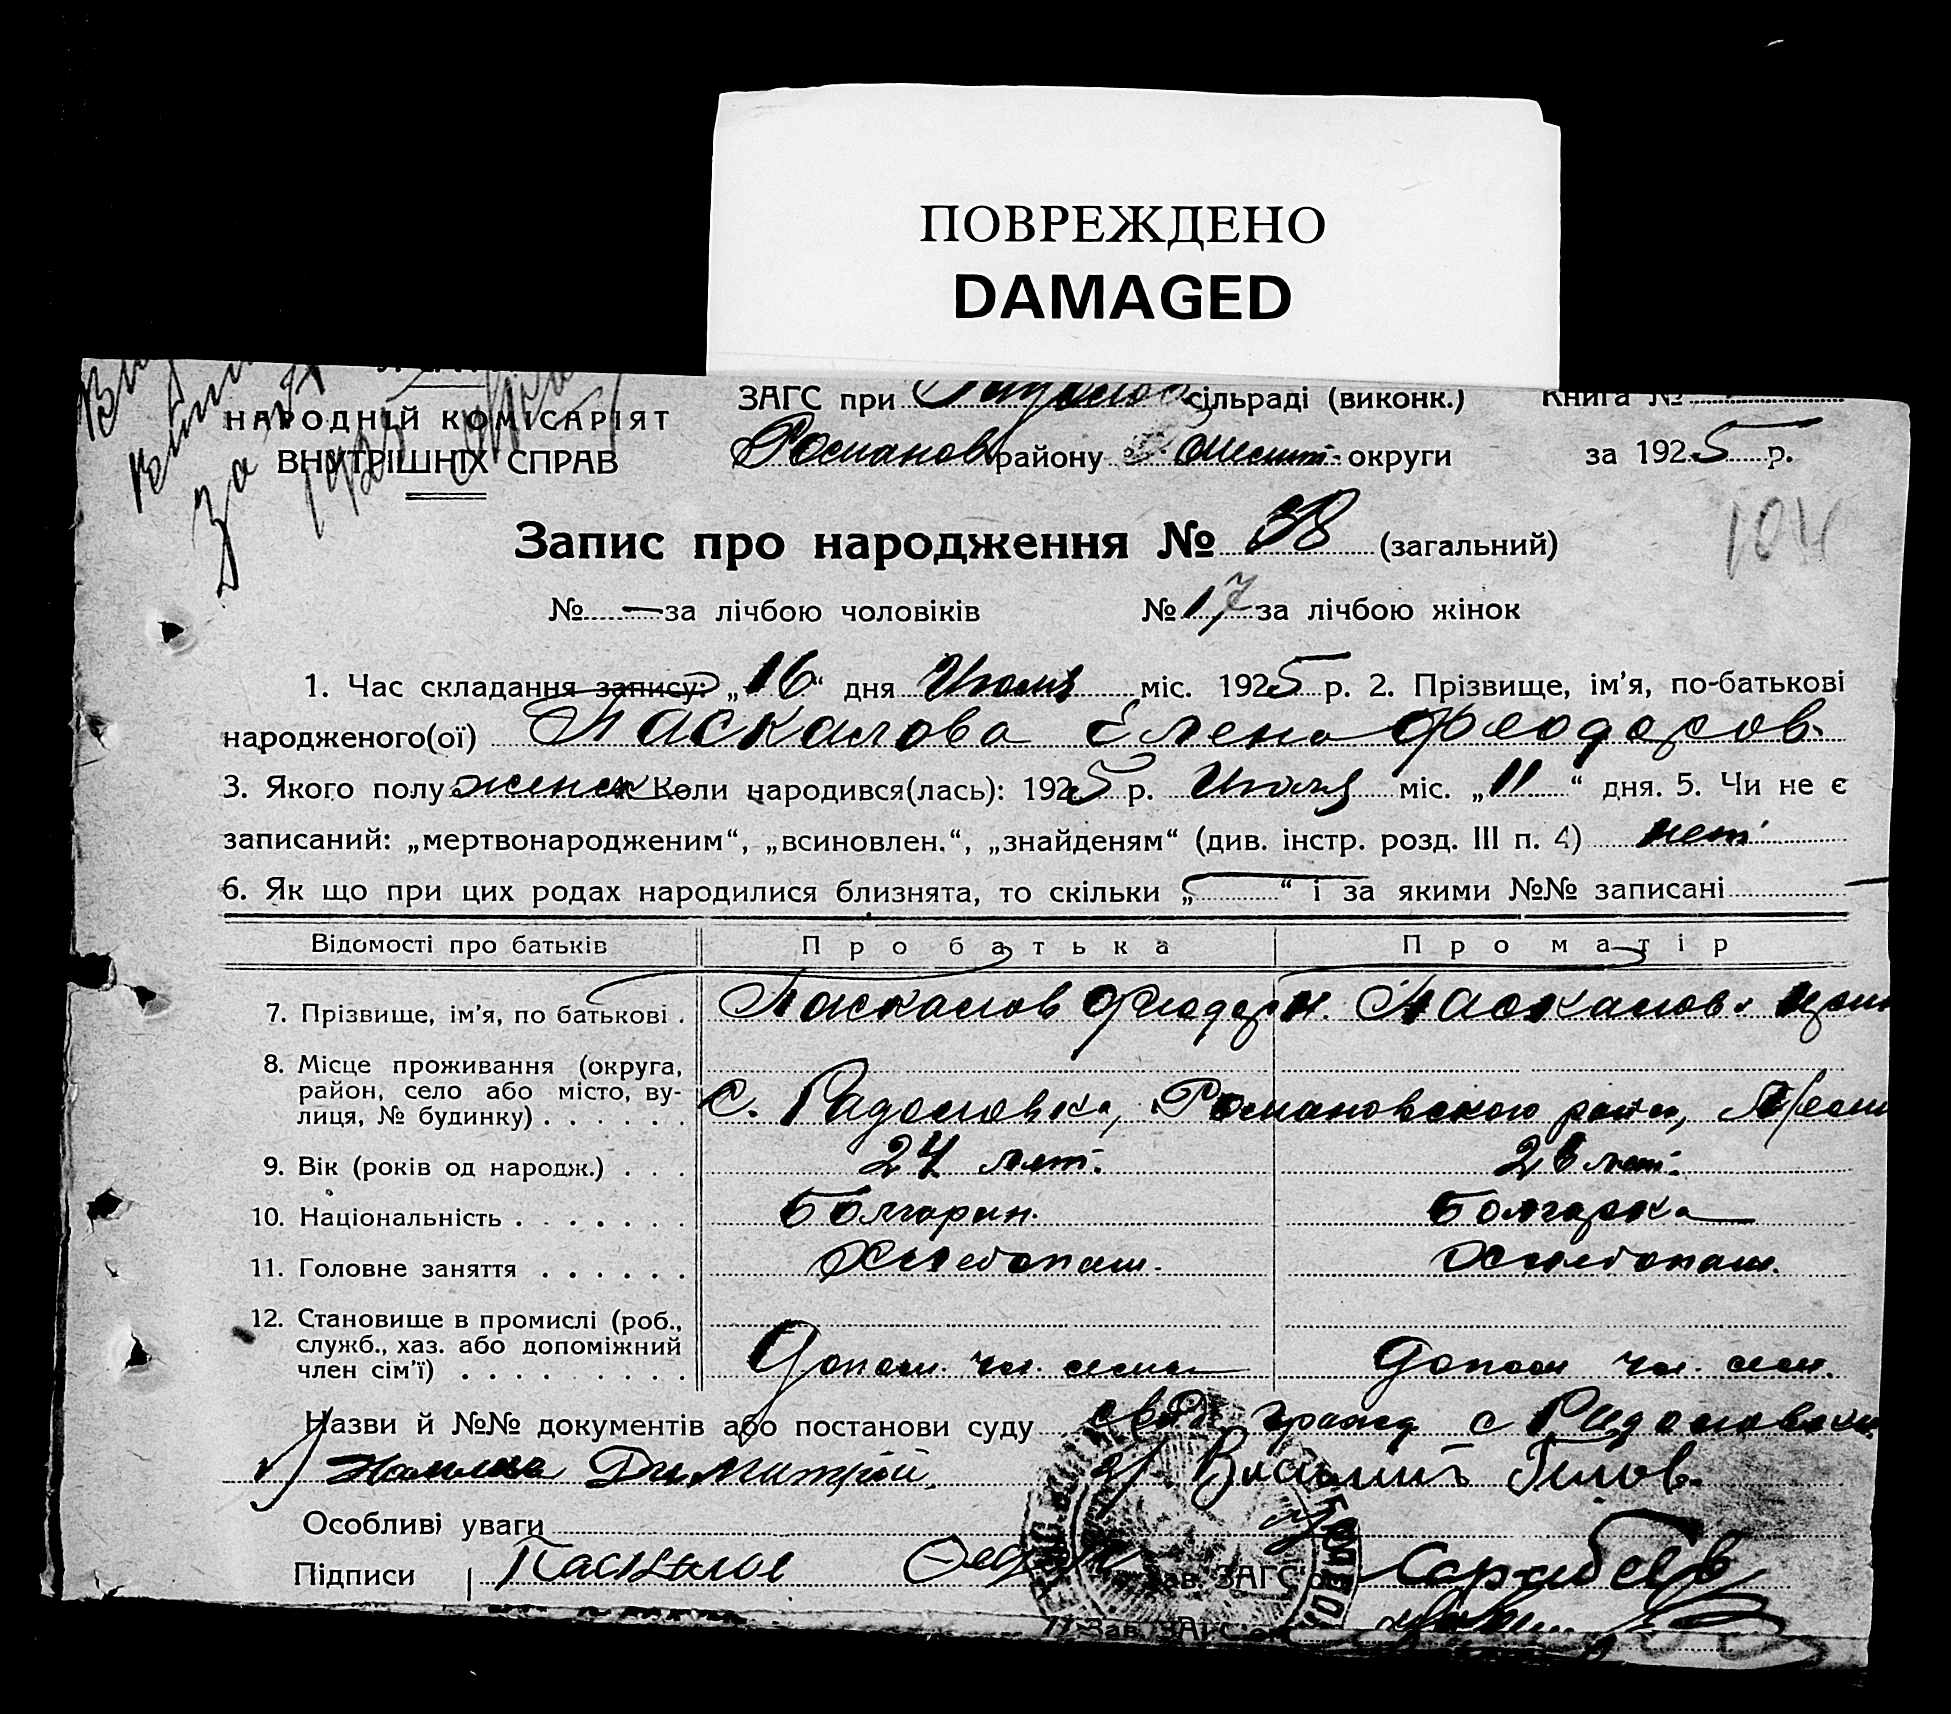 ПОВРЕЖДЕНО
DAMAGED
НАРОДНІЙ КОМІСАРІЯТ
ВНУТРІШНІХ СПРАВ
за
ЗАГС при сільраді (виконк.) Книга №
Романов району округи за 1925 р.
Запис про народження № 38 (загальний)
104
№ — за лічбою чоловіків № 17 за лічбою жінок
1. Час складання запису: „16“ дня Июля міс. 1925 р. 2. Прізвище, ім’я, по-батькові
народженого(ої) Паскалова Елена Феодоров.
3. Якого полу женск Коли народився(лась): 1925 р. Июля міс. „11“ дня. 5. Чи не є
записаний: „мертвонародженим“, „всиновлен.“, „знайденям“ (див. інстр. розд. III п. 4) нет
6. Як що при цих родах народилися близнята, то скільки „—“ і за якими №№ записані —
Відомості про батьків Про батька Про матір
7. Прізвище, ім’я, по батькові . Паскалов Феодор Н. Паскалов. Ирин
8. Місце проживання (округа,
район, село або місто, ву-
лиця, № будинку) . . . . . . С. Радоловка, Романовского район,
9. Вік (років од народж.) . . . 24 лет. лет.
10. Національність . . . . . . . Болгарин. Болгарка
11. Головне заняття . . . . . . Хлебопаш. Хлебопаш.
12. Становище в промислі (роб.,
служб., хаз. або допоміжний
член сім’ї) . . . . . . . . . Допом. чл. семи Допом чл. сем.
Назви й №№ документів або постанови суду гражд с Радоловки
Димитрий Василий
Особливі уваги
Підписи Паскалов Феодор Зав. ЗАГС’ом Сарабеев
Зав. ЗАГС’ом